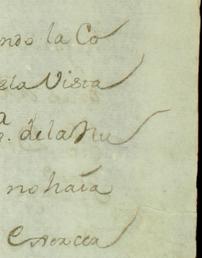 ndo la Co
ela Vista
a. de la Nu
no haia